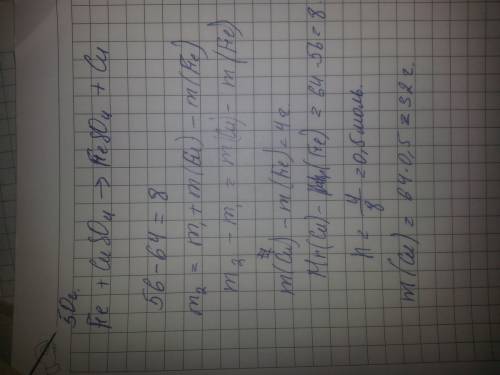 50г.
Fe + CuSO4 → FeSO4 + Cu
56-64 = 8
m2 = m1 + m(Cu) - m(Fe)
m2 - m1 = m(Cu) - m(Fe)
m(Cu) - m(Fe) = 4г
Mr(Cu) - (Fe) = 64-56 = 8
n = 4/8 = 0,5 моль.
m(Cu) = 64·0,5 = 32г.